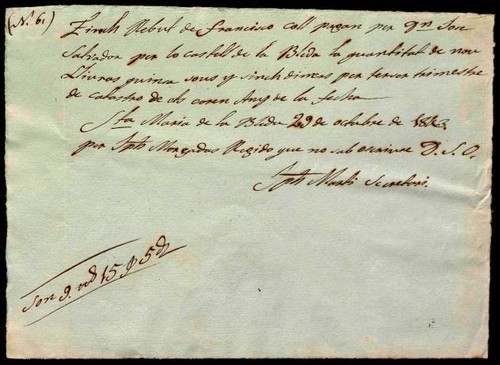 (N.º 6.)
Tinch Rebut de Francisco Coll pagan per qn Jon
Salvador per lo Castell de la Bleda la quantitat de nou
Lliuras quinse sous y sinch dines per terser trimestre
de catastro de dit coren Any de la fecha
Sta Maria de la Bleda 29 de octubre de
per Jph Morgadas Regido que no sab escriurer D. S. O.
Jph Martí Secretari.
Son 9. 15 y 5 d